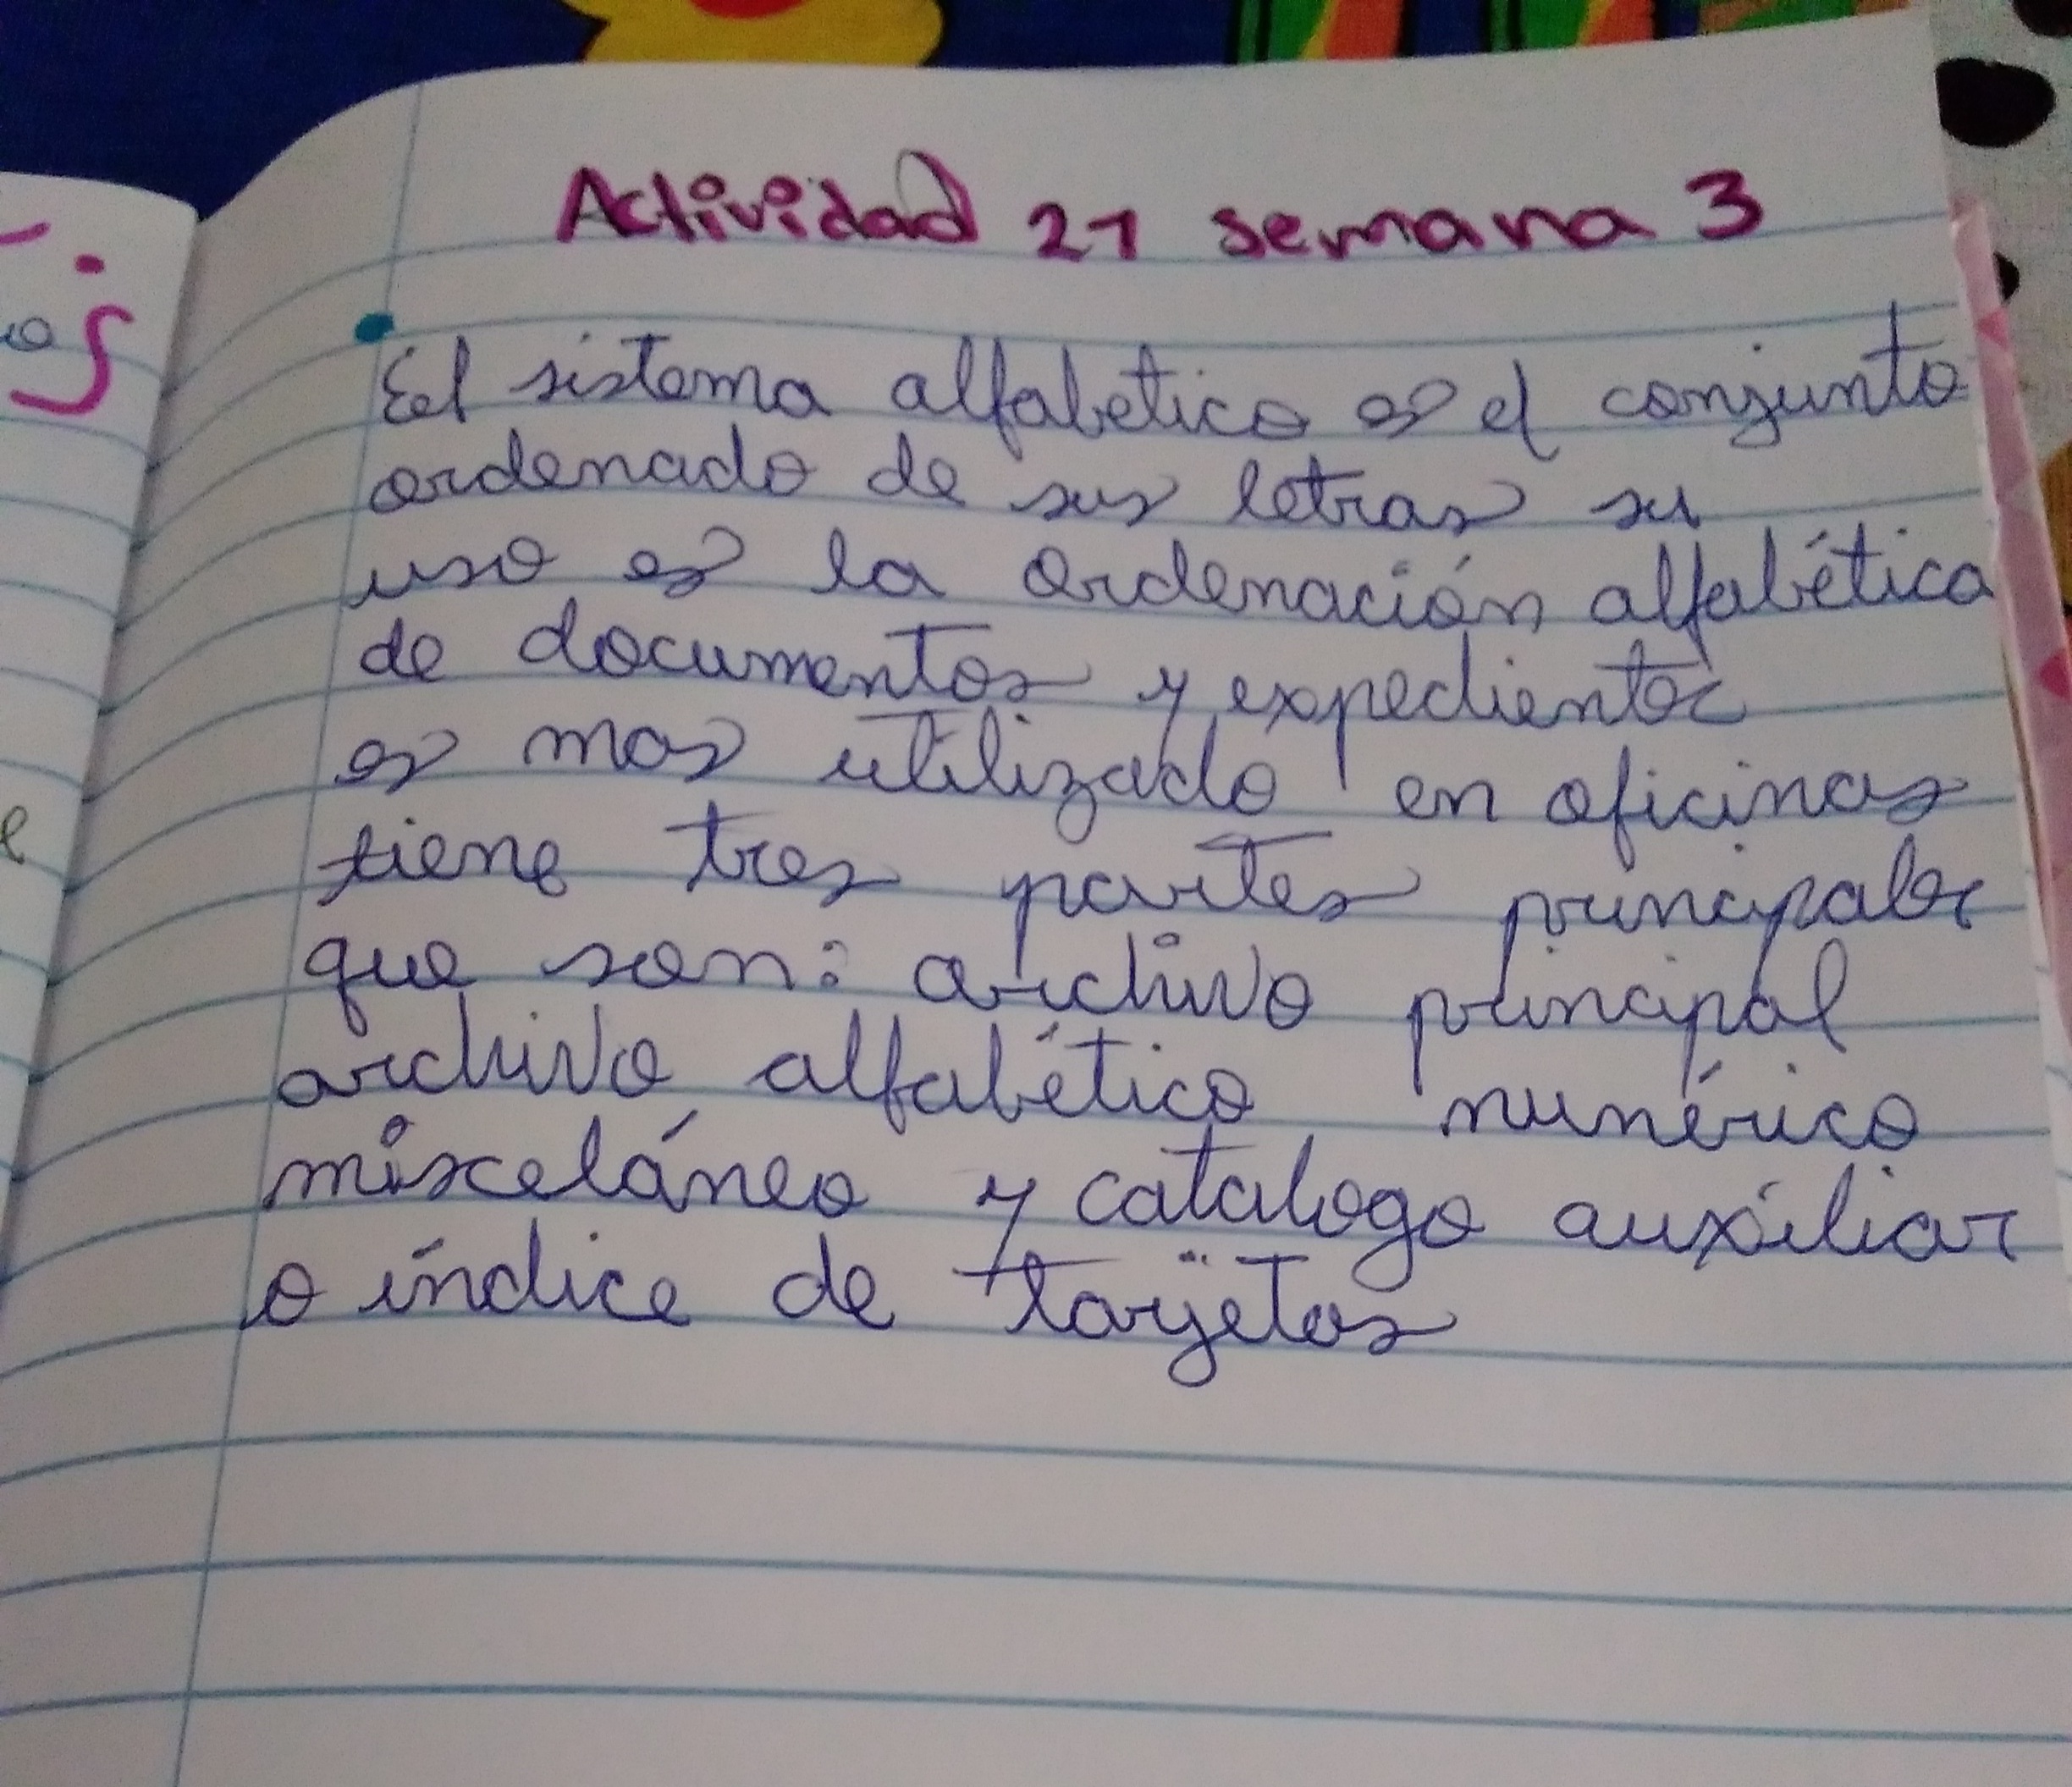 Actividad 21 semana 3
El sistema alfabetico es el conjunto
ordenado de sus letras su
uso es la ordenación alfabética
de documentos y expedientes
es mas utilizado en oficinas
tiene tres partes principales
que son: archivo principal
archivo alfabético numérico
misceláneo y catalogo auxiliar
o índice de tarjetas